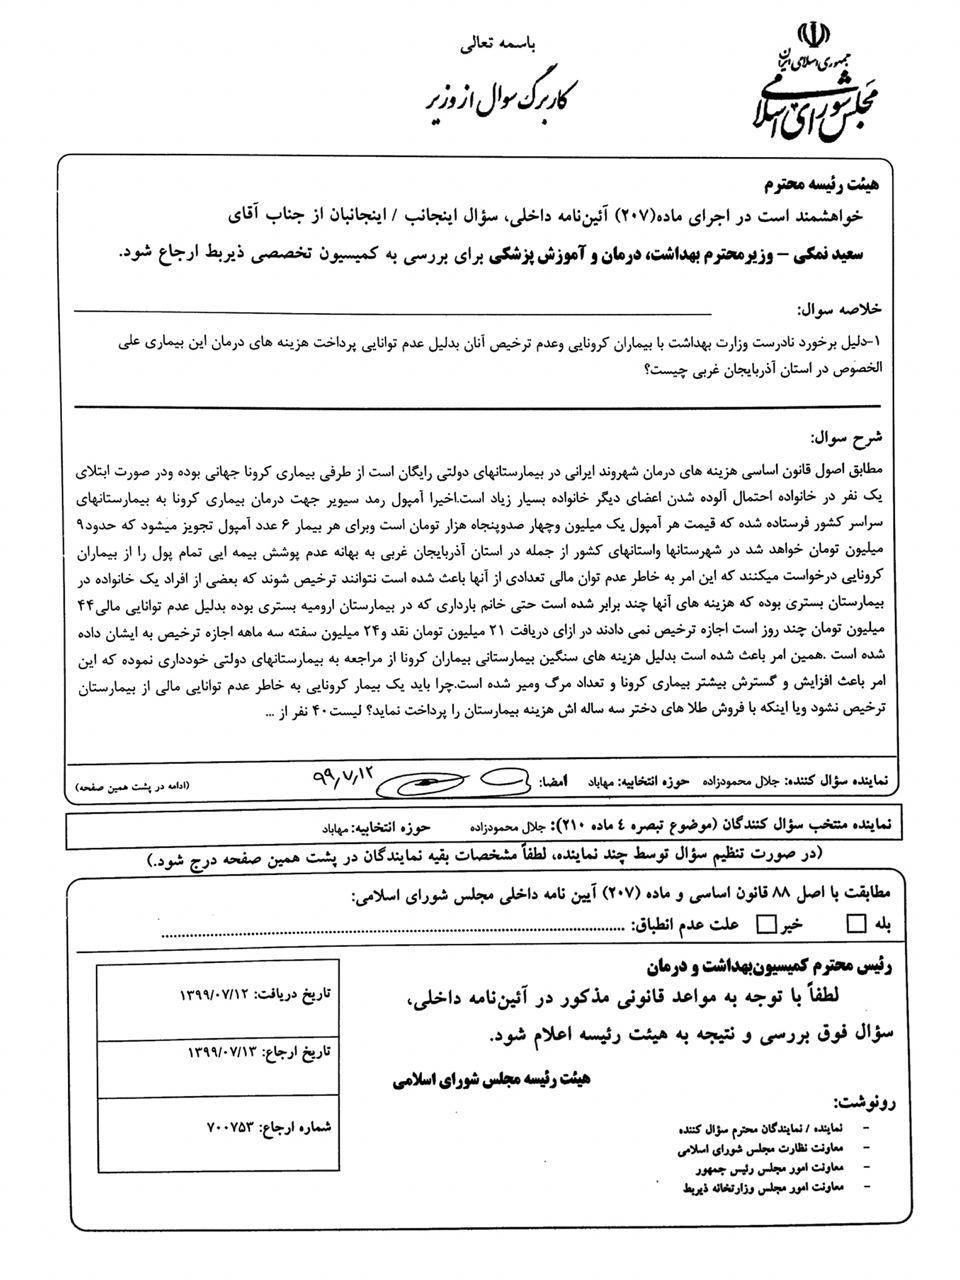 جمهوری اسلامی ایران
مجلس شورای اسلامی
باسمه تعالی
کاربرگ سوال از وزیر
هیئت رئیسه محترم
خواهشمند است در اجرای ماده(۲۰۷) آئین‌نامه داخلی، سؤال اینجانب / اینجانبان از جناب آقای
سعید نمکی – وزیرمحترم بهداشت، درمان و آموزش پزشکی برای بررسی به کمیسیون تخصصی ذیربط ارجاع شود.
خلاصه سوال:
۱-دلیل برخورد نادرست وزارت بهداشت با بیماران کرونایی وعدم ترخیص آنان بدلیل عدم توانایی پرداخت هزینه های درمان این بیماری علی
الخصوص در استان آذربایجان غربی چیست؟
شرح سوال:
مطابق اصول قانون اساسی هزینه های درمان شهروند ایرانی در بیمارستانهای دولتی رایگان است از طرفی بیماری کرونا جهانی بوده ودر صورت ابتلای
یک نفر در خانواده احتمال آلوده شدن اعضای دیگر خانواده بسیار زیاد است.اخیرا آمپول رمد سیویر جهت درمان بیماری کرونا به بیمارستانهای
سراسر کشور فرستاده شده که قیمت هر آمپول یک میلیون وچهار صدوپنجاه هزار تومان است وبرای هر بیمار ۶ عدد آمپول تجویز میشود که حدود۹
میلیون تومان خواهد شد در شهرستانها واستانهای کشور از جمله در استان آذربایجان غربی به بهانه عدم پوشش بیمه ایی تمام پول را از بیماران
کرونایی درخواست میکنند که این امر به خاطر عدم توان مالی تعدادی از آنها باعث شده است نتوانند ترخیص شوند که بعضی از افراد یک خانواده در
بیمارستان بستری بوده که هزینه های آنها چند برابر شده است حتی خانم بارداری که در بیمارستان ارومیه بستری بوده بدلیل عدم توانایی مالی۴۴
میلیون تومان چند روز است اجازه ترخیص نمی دادند در ازای دریافت ۲۱ میلیون تومان نقد و۲۴ میلیون سفته سه ماهه اجازه ترخیص به ایشان داده
شده است .همین امر باعث شده است بدلیل هزینه های سنگین بیمارستانی بیماران کرونا از مراجعه به بیمارستانهای دولتی خودداری نموده که این
امر باعث افزایش و گسترش بیشتر بیماری کرونا و تعداد مرگ ومیر شده است.چرا باید یک بیمار کرونایی به خاطر عدم توانایی مالی از بیمارستان
ترخیص نشود ویا اینکه با فروش طلا های دختر سه ساله اش هزینه بیمارستان را پرداخت نماید؟ لیست۴۰ نفر از ...
نماینده سؤال کننده: جلال محمودزاده حوزه انتخابیه: مهاباد امضا: ۹۹٫۷٫۱۲ (ادامه در پشت همین صفحه)
نماینده منتخب سؤال کنندگان (موضوع تبصره ٤ ماده ۲۱۰): جلال محمودزاده حوزه انتخابیه: مهاباد
(در صورت تنظیم سؤال توسط چند نماینده، لطفاً مشخصات بقیه نمایندگان در پشت همین صفحه درج شود.)
مطابقت با اصل ۸۸ قانون اساسی و ماده (۲۰۷) آیین نامه داخلی مجلس شورای اسلامی:
بله خیر علت عدم انطباق: ........................................
رئیس محترم کمیسیون‌بهداشت و درمان
لطفاً با توجه به مواعد قانونی مذکور در آئین‌نامه داخلی،
سؤال فوق بررسی و نتیجه به هیئت رئیسه اعلام شود.
هیئت رئیسه مجلس شورای اسلامی
تاریخ دریافت: ۱۳۹۹/۰۷/۱۲
تاریخ ارجاع: ۱۳۹۹/۰۷/۱۳
شماره ارجاع: ۷۰۰۷۵۳
رونوشت:
– نماینده / نمایندگان محترم سؤال کننده
– معاونت نظارت مجلس شورای اسلامی
– معاونت امور مجلس رئیس جمهور
– معاونت امور مجلس وزارتخانه ذیربط